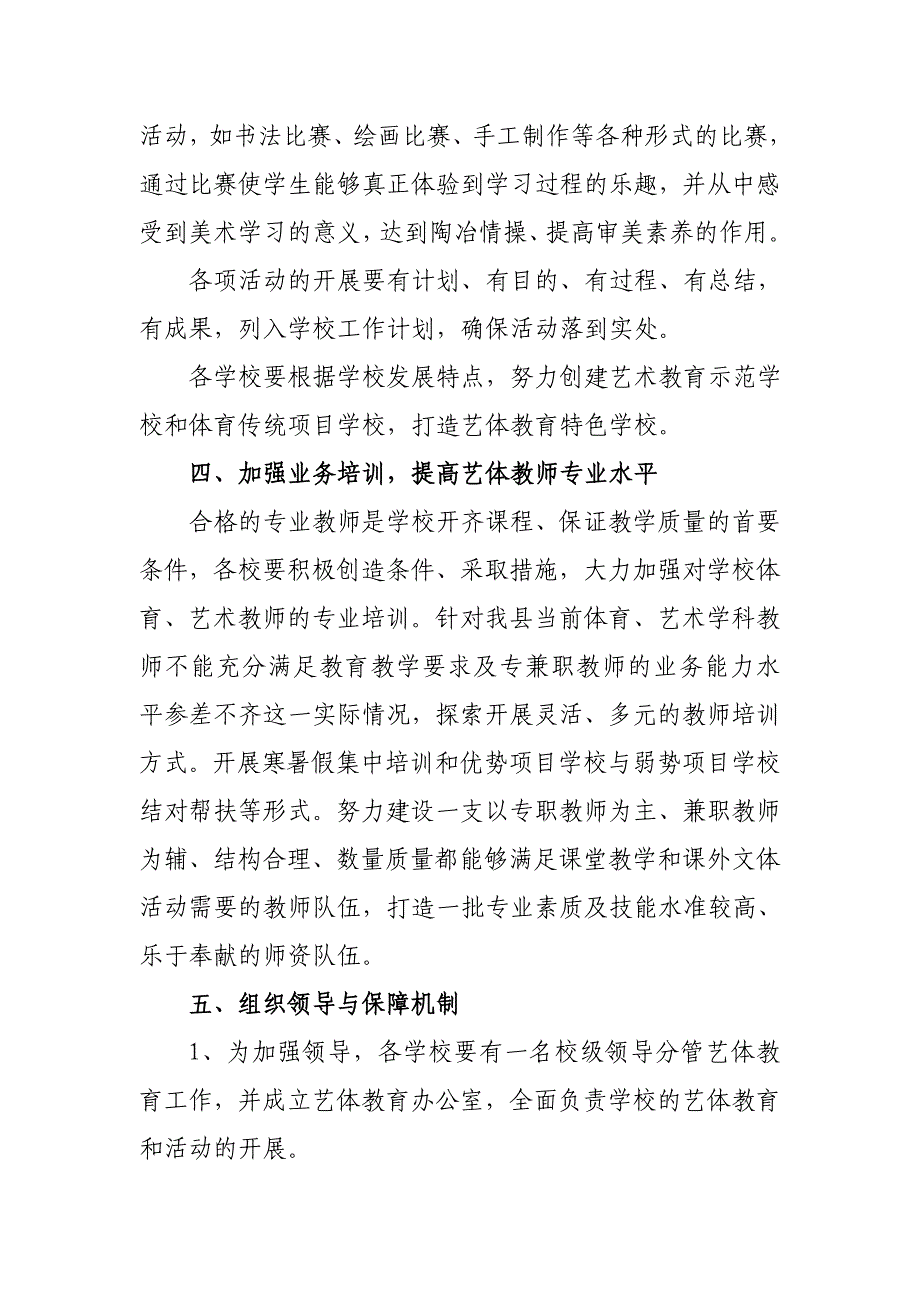 活动，如书法比赛、绘画比赛、手工制作等各种形式的比赛，
通过比赛使学生能够真正体验到学习过程的乐趣，并从中感
受到美术学习的意义，达到陶冶情操、提高审美素养的作用。
各项活动的开展要有计划、有目的、有过程、有总结，
有成果，列入学校工作计划，确保活动落到实处。
各学校要根据学校发展特点，努力创建艺术教育示范学
校和体育传统项目学校，打造艺体教育特色学校。
四、加强业务培训，提高艺体教师专业水平
合格的专业教师是学校开齐课程、保证教学质量的首要
条件，各校要积极创造条件、采取措施，大力加强对学校体
育、艺术教师的专业培训。针对我县当前体育、艺术学科教
师不能充分满足教育教学要求及专兼职教师的业务能力水
平参差不齐这一实际情况，探索开展灵活、多元的教师培训
方式。开展寒暑假集中培训和优势项目学校与弱势项目学校
结对帮扶等形式。努力建设一支以专职教师为主、兼职教师
为辅、结构合理、数量质量都能够满足课堂教学和课外文体
活动需要的教师队伍，打造一批专业素质及技能水准较高、
乐于奉献的师资队伍。
五、组织领导与保障机制
1、为加强领导，各学校要有一名校级领导分管艺体教
育工作，并成立艺体教育办公室，全面负责学校的艺体教育
和活动的开展。